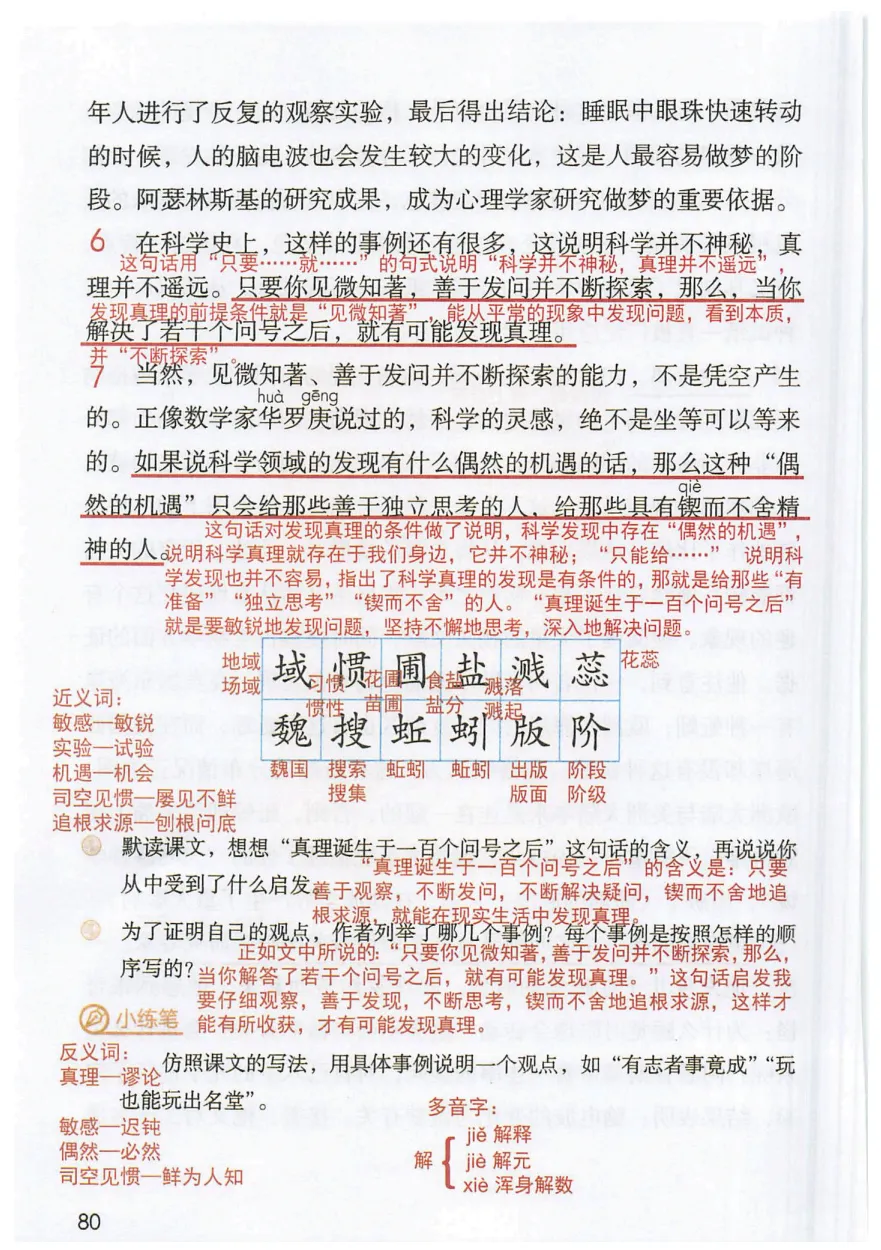 年人进行了反复的观察实验，最后得出结论：睡眠中眼珠快速转动
的时候，人的脑电波也会发生较大的变化，这是人最容易做梦的阶
段。阿瑟林斯基的研究成果，成为心理学家研究做梦的重要依据。
6 在科学史上，这样的事例还有很多，这说明科学并不神秘，真
这句话用“只要……就……”的句式说明“科学并不神秘，真理并不遥远”，
理并不遥远。只要你见微知著，善于发问并不断探索，那么，当你
发现真理的前提条件就是“见微知著”，能从平常的现象中发现问题，看到本质，
解决了若干个问号之后，就有可能发现真理。
并“不断探索”。
7 当然，见微知著、善于发问并不断探索的能力，不是凭空产生
huà gēng
的。正像数学家华罗庚说过的，科学的灵感，绝不是坐等可以等来
的。如果说科学领域的发现有什么偶然的机遇的话，那么这种“偶
qiè
然的机遇”只会给那些善于独立思考的人，给那些具有锲而不舍精
这句话对发现真理的条件做了说明，科学发现中存在“偶然的机遇”，
神的人。说明科学真理就存在于我们身边，它并不神秘；“只能给……”说明科
学发现也并不容易，指出了科学真理的发现是有条件的，那就是给那些“有
准备”“独立思考”“锲而不舍”的人。“真理诞生于一百个问号之后”
就是要敏锐地发现问题，坚持不懈地思考，深入地解决问题。
地域 域惯圃盐溅蕊 花蕊
场域 习惯 花圃 食盐 溅落
惯性 苗圃 盐分 溅起
魏搜蚯蚓版阶
魏国 搜索 蚯蚓 蚯蚓 出版 阶段
搜集 版面 阶级
近义词：
敏感—敏锐
实验—试验
机遇—机会
司空见惯—屡见不鲜
追根求源—刨根问底
默读课文，想想“真理诞生于一百个问号之后”这句话的含义，再说说你
“真理诞生于一百个问号之后”的含义是：只要
从中受到了什么启发。善于观察，不断发问，不断解决疑问，锲而不舍地追
根求源，就能在现实生活中发现真理。
为了证明自己的观点，作者列举了哪几个事例？每个事例是按照怎样的顺
正如文中所说的：“只要你见微知著，善于发问并不断探索，那么，
序写的？当你解答了若干个问号之后，就有可能发现真理。”这句话启发我
要仔细观察，善于发现，不断思考，锲而不舍地追根求源，这样才
小练笔 能有所收获，才有可能发现真理。
仿照课文的写法，用具体事例说明一个观点，如“有志者事竟成”“玩
也能玩出名堂”。
反义词：
真理—谬论
敏感—迟钝
偶然—必然
司空见惯—鲜为人知
多音字：
jiě 解释
解 jiè 解元
xiè 浑身解数
80